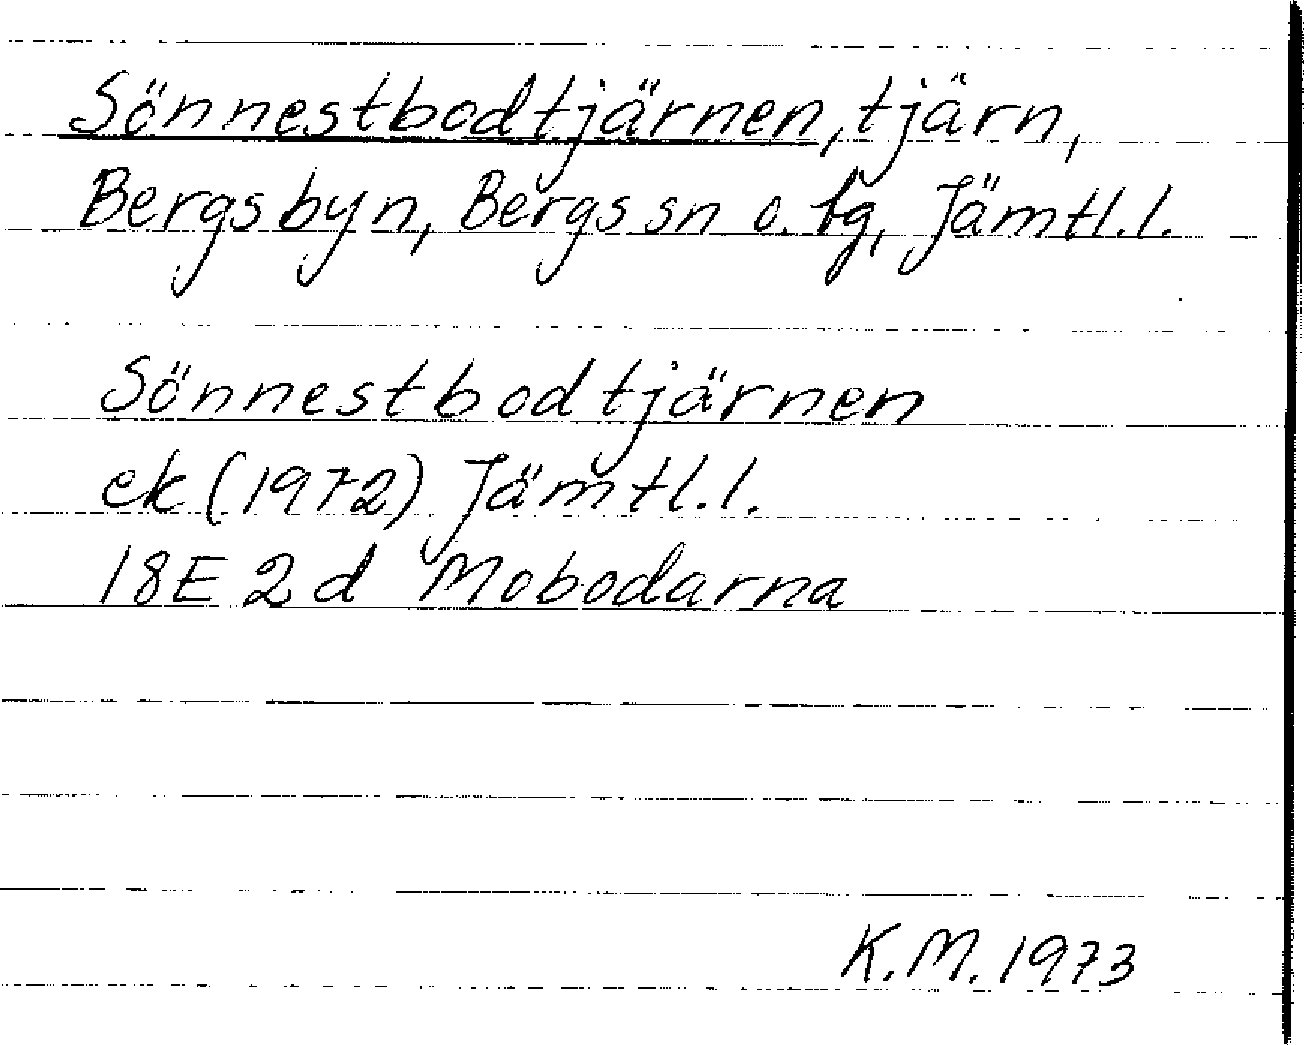 Sönnestbodtjärnen, tjärn,
Bergsbyn, Bergs sn o. tg, Jämtl.l.
Sönnestbodtjärnen
ek (1972) Jämtl.l.
18E 2d Mobodarna
K.M. 1973